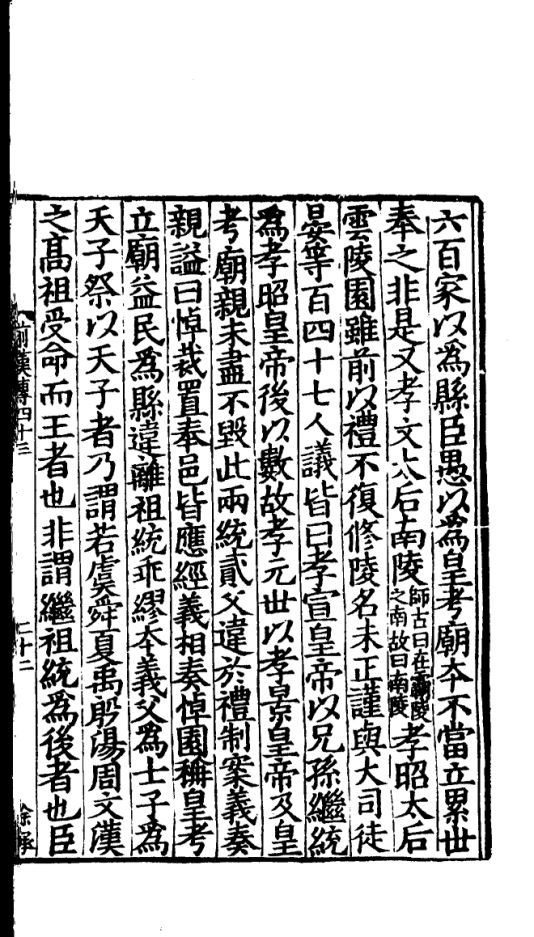 六百家以為縣臣愚以為皇考廟夲不當立累世
奉之非是又孝文太后南陵師古曰在霸陵之南故曰南陵孝昭太后
雲陵園雖前以禮不復修陵名未正謹與大司徒
晏等百四十七人議皆曰孝宣皇帝以兄孫繼統
爲孝昭皇帝後以數故孝元世以孝景皇帝及皇
考廟親未盡不毀此兩統貳父違於禮制案義奏
親謚曰悼裁置奉邑皆應經義相奏悼園稱皇考
立廟益民為縣違離祖統乖繆夲義父為士子為
天子祭以天子者乃謂若虞舜夏禹殷湯周文漢
之髙祖受命而王者也非謂繼祖統為後者也臣
前漢傳四十三
二十二
余承